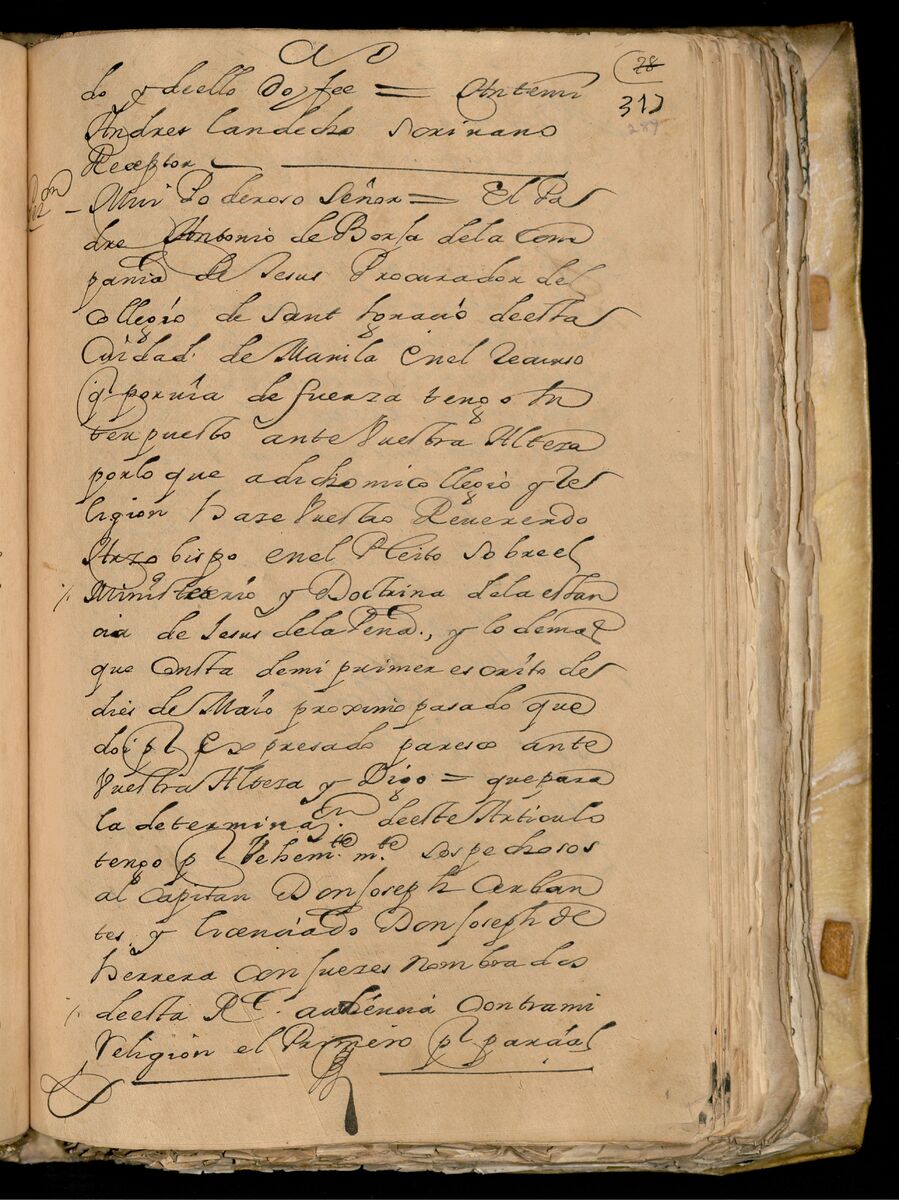 28
317
289
do y deello Doy fee = Antemi
Andres Landecho Scrivano
Receptor
Petiⁿ
Mui Poderoso Señor = El Pa
dre Antonio de Borja dela Com
pania de Jesus Procurador del
Collegio de Sant Ygnacio deesta
Ciudad. de Manila enel recurso
q̃ por via de fuerza tengo In
terpuesto ante Vuestra Alteza
porlo que adicho mi collegio y re
ligion haze Vuestro Reuerendo
Arzobispo enel Pleito sobreel
Ministerio y Doctrina dela estan
cia de Jesus dela Pena., y lo demas
que consta demi primer escrito de
dies de Maio proximo pasado que
doi pʳ Expresado paresco ante
Vuestra Alteza y Digo = quepara
la determinaⁿ. deeste Articulo
tengo pʳ Vehemᵗᵉ. mᵗᵉ sospechosos
al Capitan Don Joseph Cerban
tes y licenciado Don Joseph de
Herrera conjuezes nombrados
deesta Rˡ. audiencia contra mi
Religion el Primero pʳ